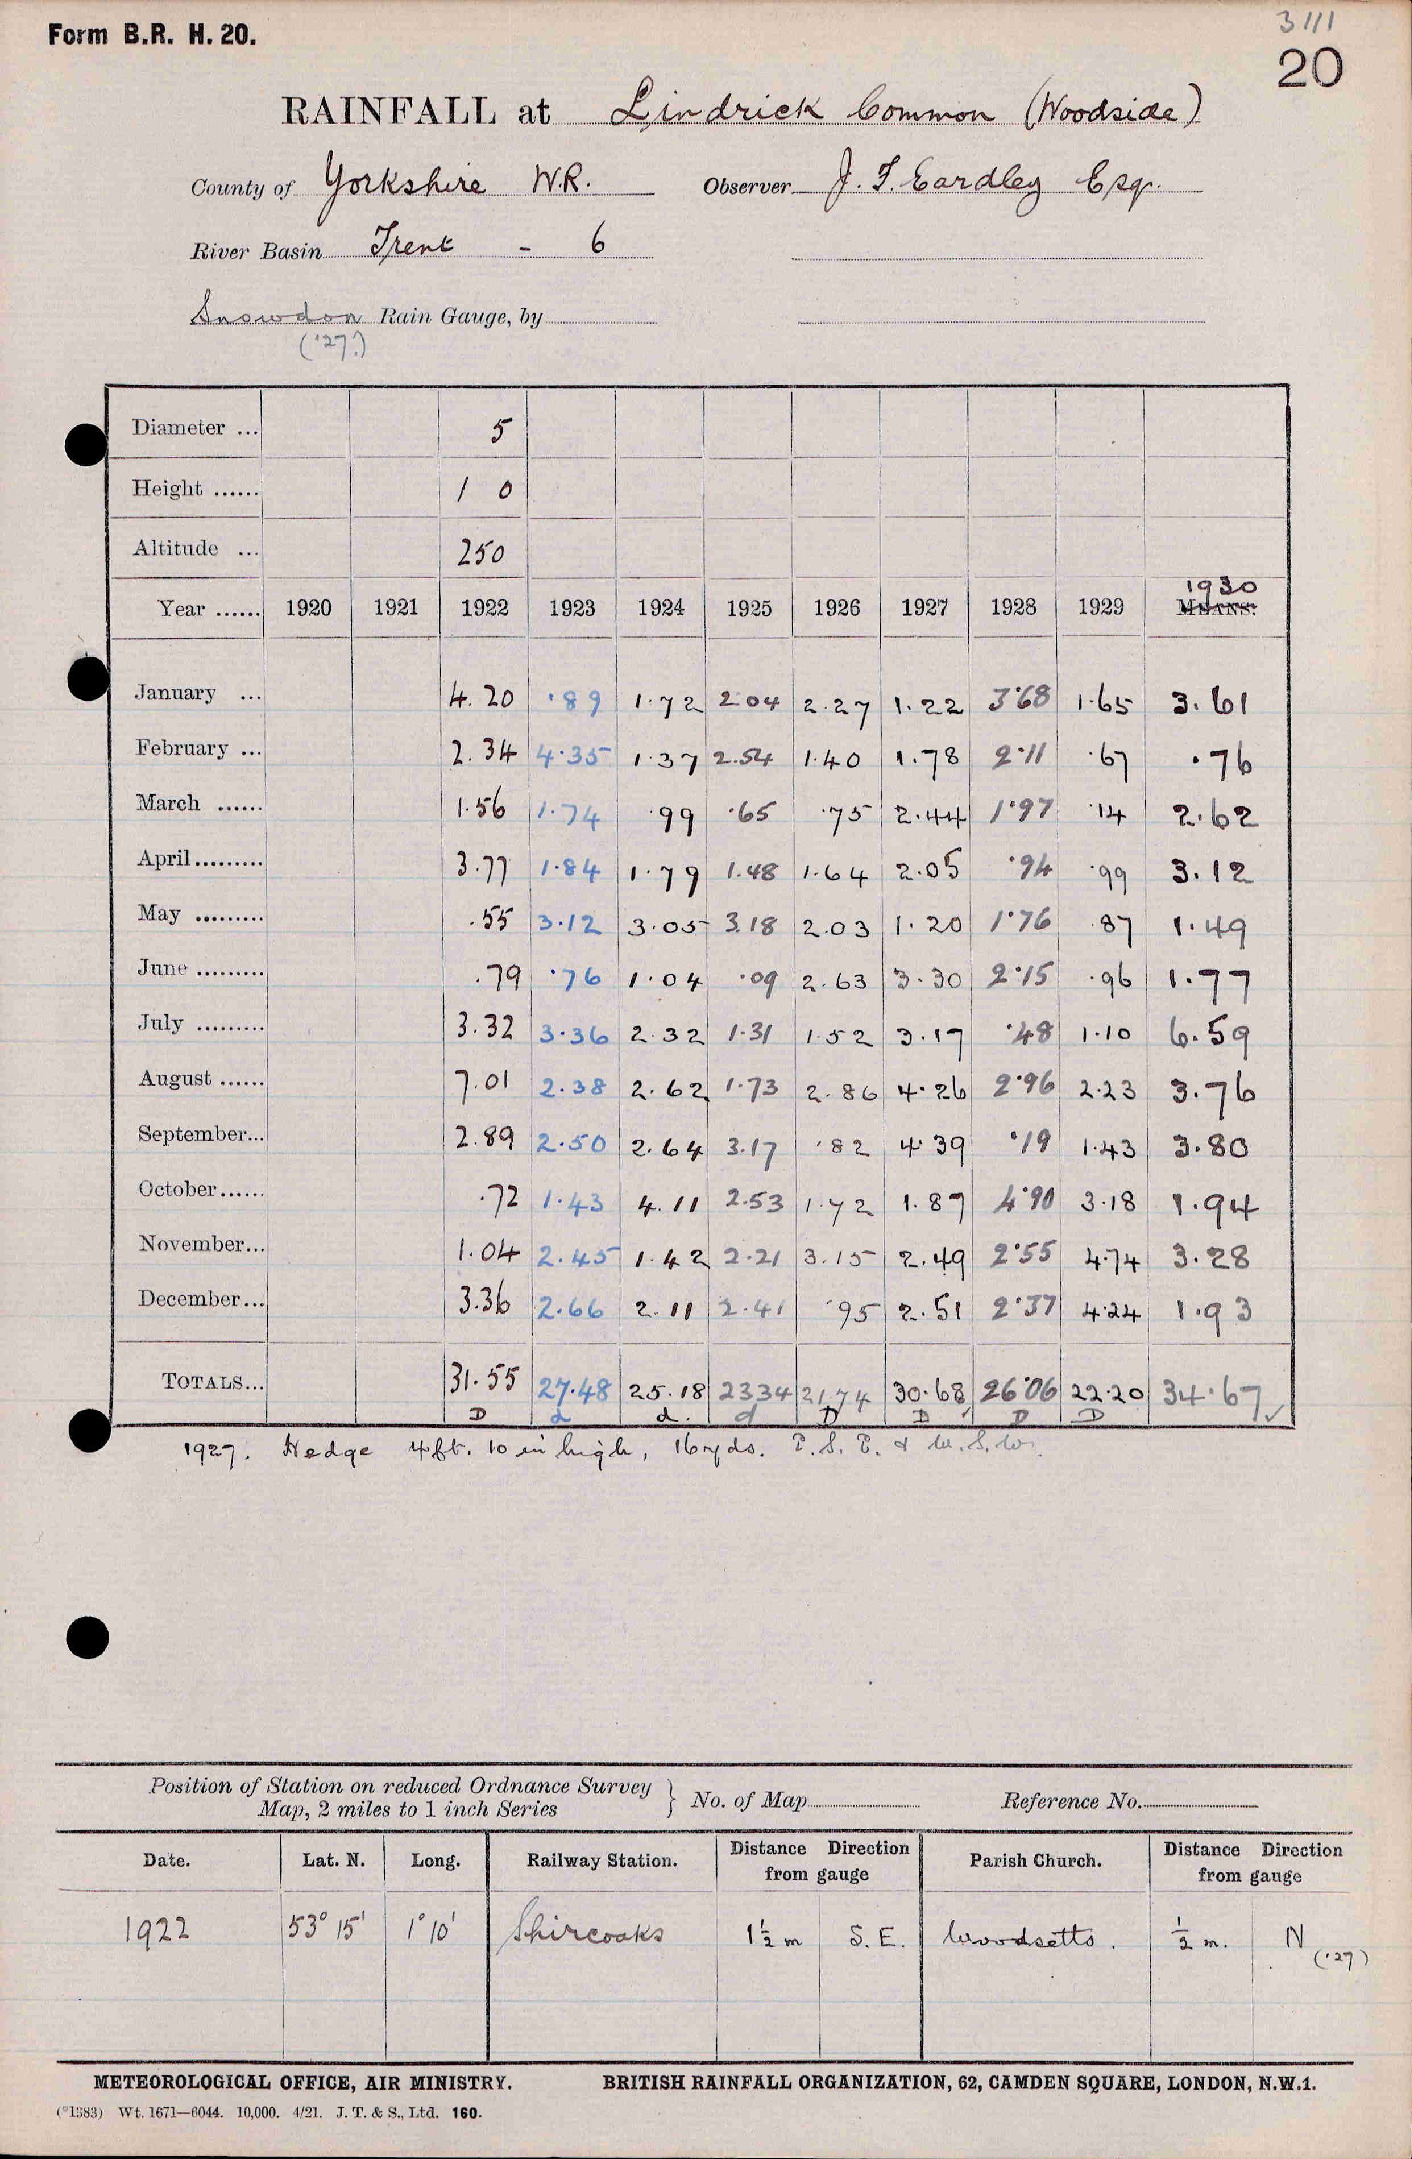 Form B.R. H. 20.
3111
20
RAINFALL at Lindrick Common (Woodside)
County of Yorkshire W.R. Observer J. F. Eardley Esqr.
River Basin Trent - 6
Snowdon Rain Gauge, by
('27.)
Diameter ... 5
Height ...... 1 0
Altitude ... 250
1930
Year ...... 1920 1921 1922 1923 1924 1925 1926 1927 1928 1929 MEANS.
January ... 4.20 .89 1.72 2.04 2.27 1.22 3.68 1.65 3.61
February ... 2.34 4.35 1.37 2.54 1.40 1.78 2.11 .67 .76
March ...... 1.56 1.74 .99 .65 .75 2.44 1.97 .14 2.62
April ......... 3.77 1.84 1.79 1.48 1.64 2.05 .94 .99 3.12
May ......... .55 3.12 3.05 3.18 2.03 1.20 1.76 .87 1.49
June ......... .79 .76 1.04 .09 2.63 3.30 2.15 .96 1.77
July ......... 3.32 3.36 2.32 1.31 1.52 3.17 .48 1.10 6.59
August ...... 7.01 2.38 2.62 1.73 2.86 4.26 2.96 2.23 3.76
September... 2.89 2.50 2.64 3.17 .82 4.39 .19 1.43 3.80
October ...... .72 1.43 4.11 2.53 1.72 1.87 4.90 3.18 1.94
November... 1.04 2.45 1.42 2.21 3.15 2.49 2.55 4.74 3.28
December... 3.36 2.66 2.11 2.41 .95 2.51 2.37 4.24 1.93
TOTALS... 31.55 27.48 25.18 2334 21.74 30.68 26.06 22.20 34.67
D d d. d D D D D
1927. Hedge 4ft. 10 in high, 16 yds. E.S.E. & W.S.W.
Position of Station on reduced Ordnance Survey
Map, 2 miles to 1 inch Series } No. of Map Reference No.
Date. Lat. N. Long. Railway Station. Distance Direction from gauge Parish Church. Distance Direction from gauge
1922 53° 15' 1° 10' Shireoaks 1½ m S.E. Woodsetts. ½ m. N ('27)
METEOROLOGICAL OFFICE, AIR MINISTRY. BRITISH RAINFALL ORGANIZATION, 62, CAMDEN SQUARE, LONDON, N.W.1.
(*1383) Wt. 1671—6044. 10,000. 4/21. J. T. & S., Ltd. 160.